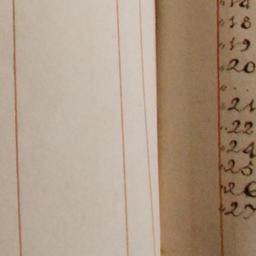 14
18
19
20
21
22
24
25
26
27